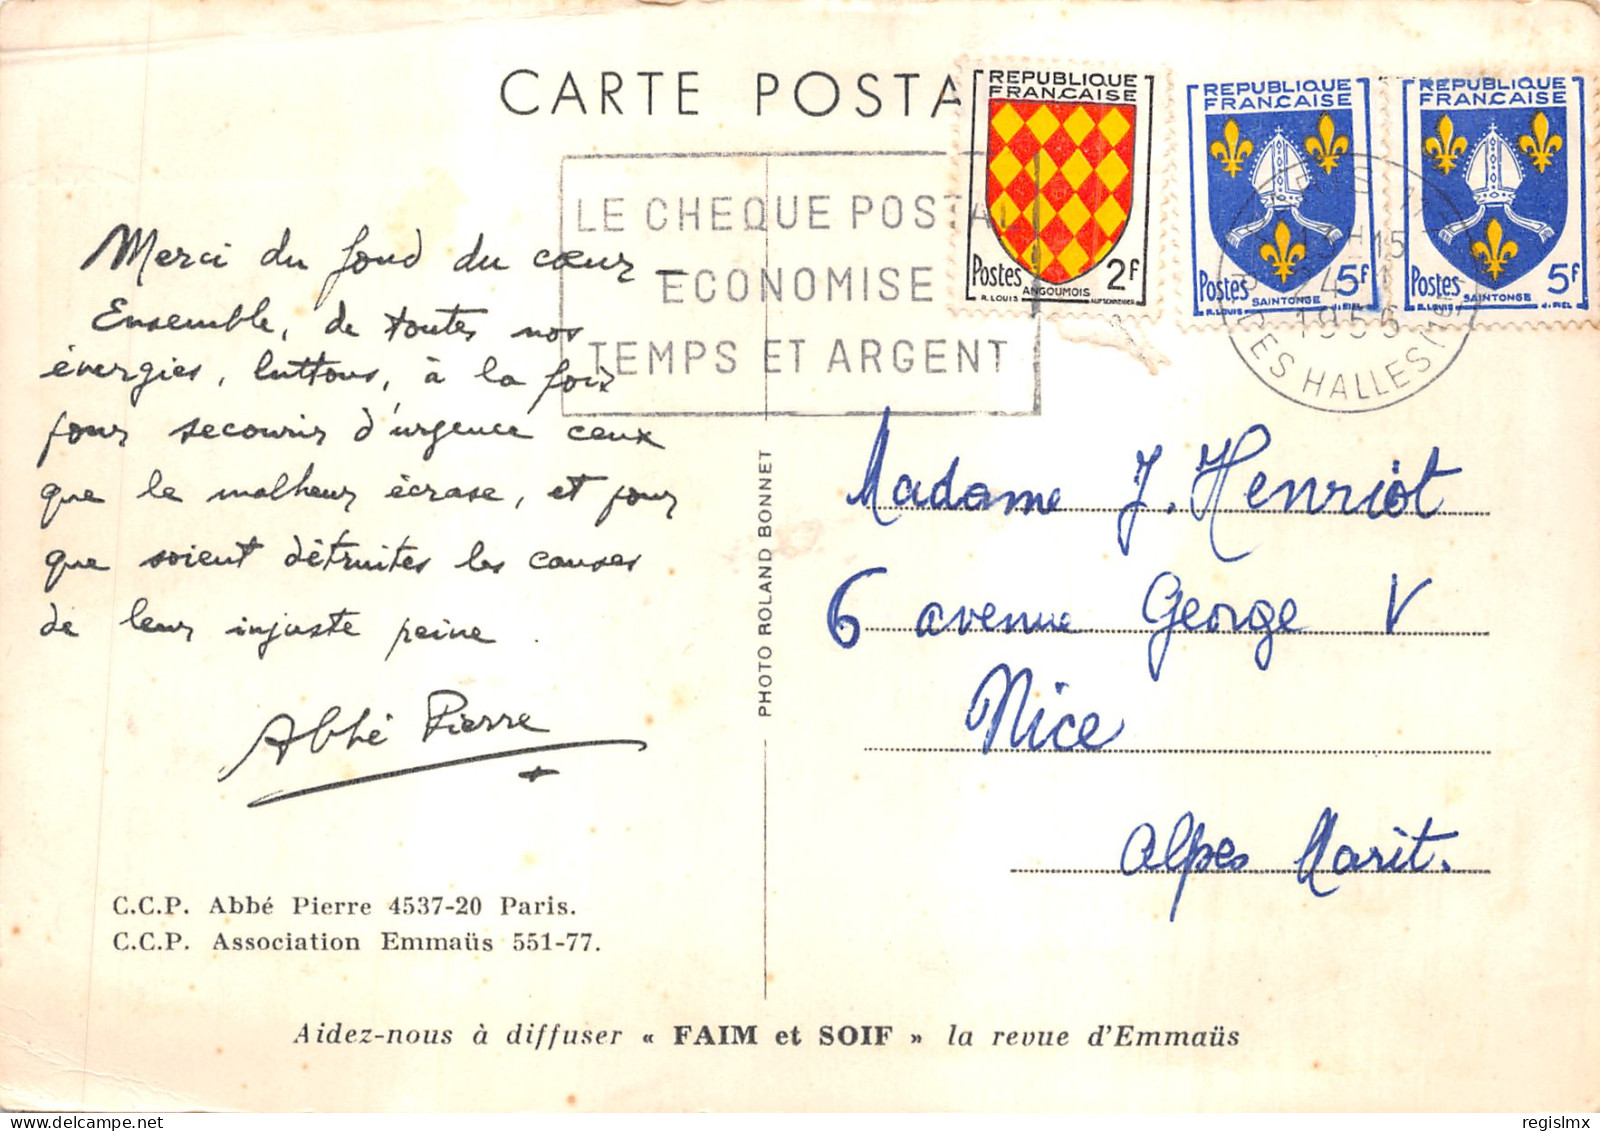 CARTE POSTA
REPUBLIQUE
FRANÇAISE
Postes 2F
ANGOUMOIS
R. LOUIS
REPUBLIQUE
FRANÇAISE
Postes 5F
SAINTONGE
R. LOUIS J. PIEL
REPUBLIQUE
FRANÇAISE
Postes 5F
SAINTONGE
R. LOUIS J. PIEL
LE CHEQUE POSTAL
ECONOMISE
TEMPS ET ARGENT
1955
DES HALLES
Merci du fond du cœur
Ensemble, de toutes nos
énergies, luttons, à la fois
pour secourir d'urgence ceux
que le malheur écrase, et pour
que soient détruites les causes
de leur injuste peine.
Abbé Pierre
C.C.P. Abbé Pierre 4537-20 Paris.
C.C.P. Association Emmaüs 551-77.
PHOTO ROLAND BONNET
Madame J. Henriot
6 avenue George V
Nice
Alpes Marit.
Aidez-nous à diffuser « FAIM et SOIF » la revue d'Emmaüs
regislmx